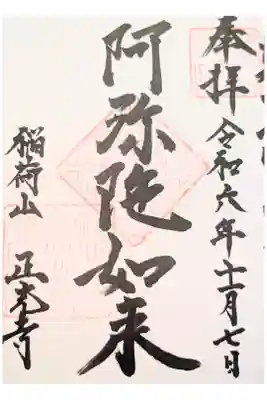 奉拝 令和六年十一月七日
阿弥陀如来
稲荷山 正光寺